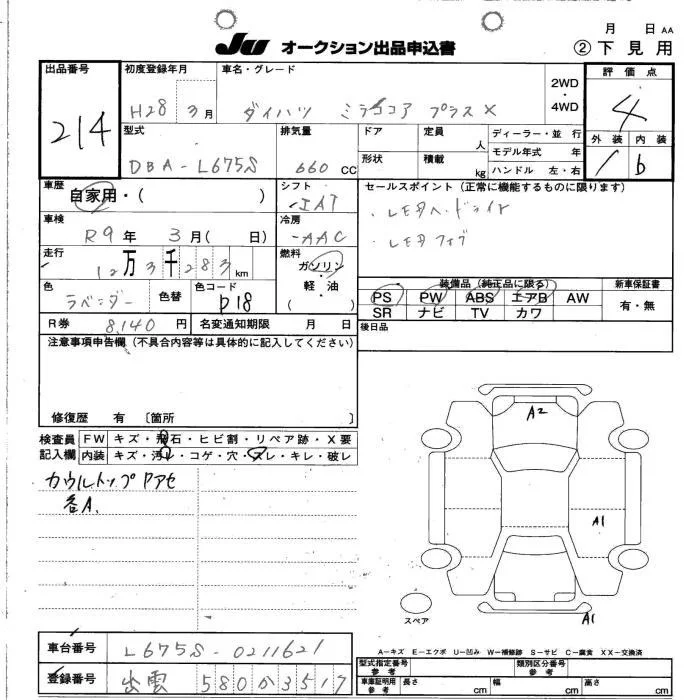 月 日 AA
JU オークション出品申込書 ②下見用
出品番号 初度登録年月 車名・グレード 評価点
214
H28 3月 ダイハツ ミラココア プラスX 2WD・4WD 4
型式 排気量 ドア 定員 人 ディーラー・並 行 外装 内装
DBA-L675S 660 CC 形状 積載 kg モデル年式 年 1 b
ハンドル 左・右
車歴 シフト セールスポイント (正常に機能するものに限ります)
自家用・( ) IAT ・LEDヘッドライト
車検 冷房 ・LEDフォグ
R9年 3月( 日) AAC
走行 燃料
12万3千283km ガソリン・軽・油 ( )
色 色替 色コード 装備品 (純正品に限る) 新車保証書
ラベンダー P18 PS PW ABS エアB AW 有・無
SR ナビ TV カワ
R券 8,140円 名変通知期限 月 日 後日品
注意事項申告欄 (不具合内容等は具体的に記入してください)
修復歴 有 〔箇所 〕
検査員記入欄 FW キズ・飛石・ヒビ割・リペア跡・X要
内装 キズ・汚れ・コゲ・穴・スレ・キレ・破レ
カウルトップ アセ
各A.
A2
A1
スペア A1
A-キズ E-エクボ U-凹み W-補修跡 S-サビ C-腐食 XX-交換済
車台番号 L675S-0211621
型式指定番号 参考 類別区分番号 参考
登録番号 出雲 580か3517
車庫証明用参考 長さ cm 幅 cm 高さ cm